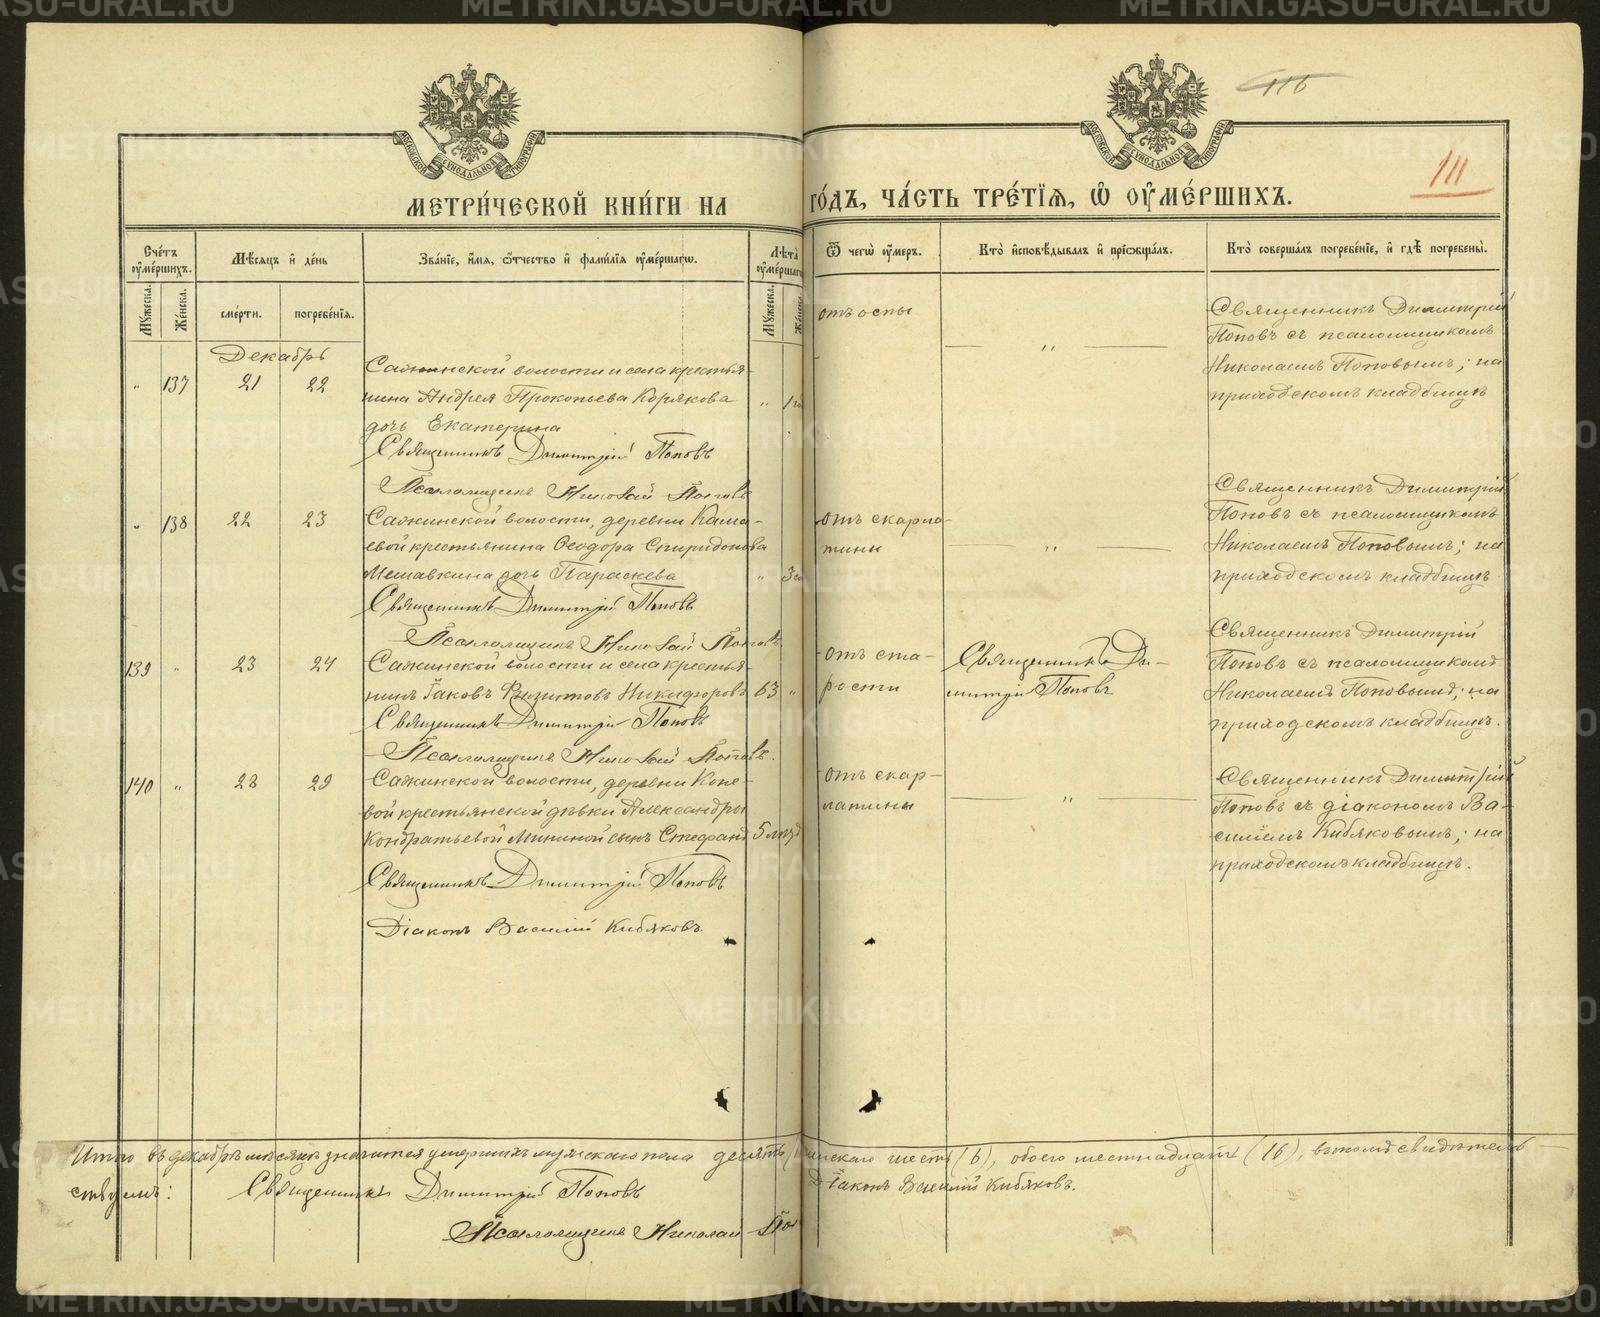 116
111
МЕТРИ́ЧЕСКОЙ КНИ́ГИ НА
ГО́ДЪ, ЧА́СТЬ ТРЕ́ТІѦ, Ѡ҆ ОУ҆МЕ́РШИХЪ.
Сче́тъ оу҆ме́ршихъ.
Мѣ́сяцъ и҆ де́нь
Зва́нїе, и҆́мя, ѻ҆́тчество и҆ фами́лїя оу҆ме́ршагѡ.
Лѣ́та оу҆ме́ршагѡ
Ѿ чегѡ̀ оу҆́меръ.
Кто̀ и҆сповѣ́дывалъ и҆ прїѡбща́лъ.
Кто̀ соверша́лъ погребе́нїе, и҆ гдѣ̀ погребены̀.
Мꙋ́жеска.
Же́нска.
сме́рти.
погребе́нїя.
Мꙋ́жеска.
Же́нска.
Декабрь
" 137 21 22
Сажинской волости и села крестья-
нина Андрея Прокопьева Корякова
дочь Екатерина
" 1
Священникъ Димитрій Поповъ
Псаломщикъ Николай Поповъ
отъ оспы
"
Священникъ Димитрій
Поповъ съ псаломщикомъ
Николаемъ Поповымъ; на
приходскомъ кладбищѣ
" 138 22 23
Сажинской волости, деревни Кама-
евой крестьянина Ѳеодора Спиридонова
Мешавкина дочь Параскева
" 3
Священникъ Димитрій Поповъ
Псаломщикъ Николай Поповъ
отъ скарла-
тины
"
Священникъ Димитрій
Поповъ съ псаломщикомъ
Николаемъ Поповымъ; на
приходскомъ кладбищѣ
139 " 23 24
Сажинской волости и села крестья-
нинъ Іаковъ Никифоровъ
63 "
Священникъ Димитрій Поповъ
Псаломщикъ Николай Поповъ.
отъ ста-
рости
Священникъ Ди-
митрій Поповъ
Священникъ Димитрій
Поповъ съ псаломщикомъ
Николаемъ Поповымъ; на
приходскомъ кладбищѣ.
140 " 28 29
Сажинской волости, деревни Коне-
вой крестьянской дѣвки Александры
Кондратьевой Мининой сынъ Стефанъ
5 м.
Священникъ Димитрій Поповъ
Діаконъ Василій Кибяковъ.
отъ скар-
латины
"
Священникъ Димитрій
Поповъ съ діакономъ Ва-
силіемъ Кибяковымъ; на
приходскомъ кладбищѣ.
Итого въ декабрѣ мѣсяцѣ значится умершихъ мужскаго пола десять женскаго шесть (6), обоего шестнадцать (16), въ томъ свидѣтель-
ствуемъ: Священникъ Димитрій Поповъ
Діаконъ Василій Кибяковъ.
Псаломщикъ Николай По
METRIKI.GASO-URAL.RU